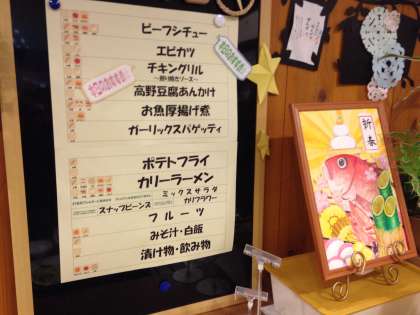 ビーフシチュー
エビカツ
チキングリル
～照り焼きソース～
高野豆腐あんかけ
お魚厚揚げ煮
ガーリックスパゲッティ
ポテトフライ
カリーラーメン
ミックスサラダ
スナップビーンズ カリフラワー
フルーツ
みそ汁・白飯
漬け物・飲み物
新春